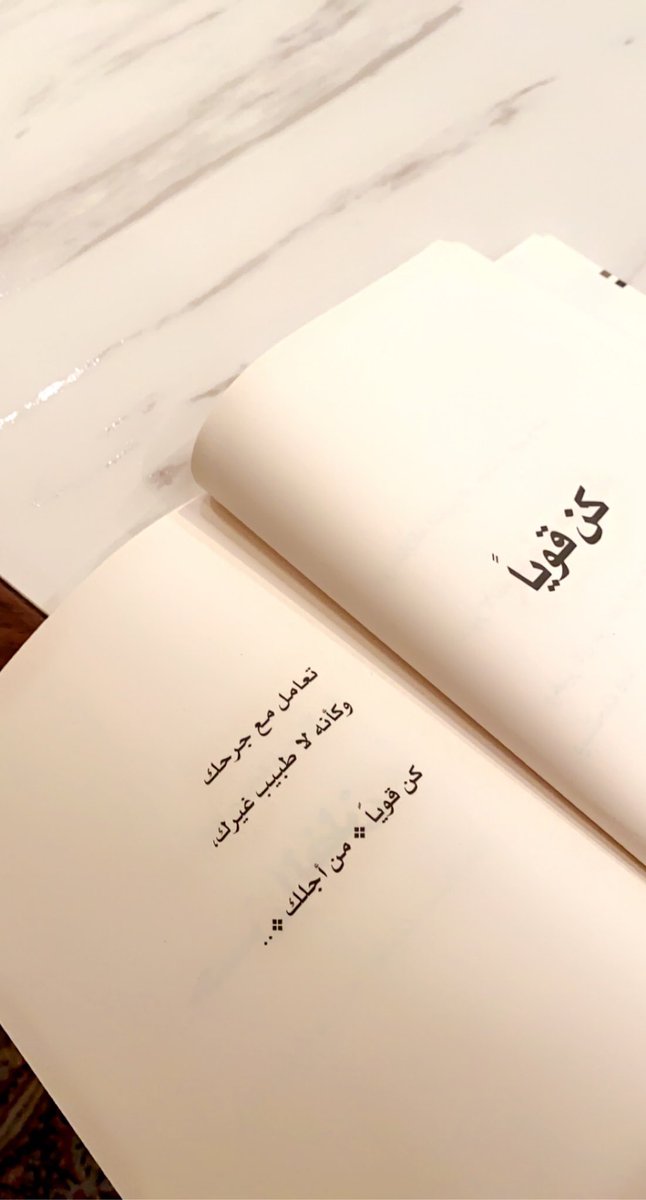 كن قوياً
تعامل مع جرحك
وكأنه لا طبيب غيرك،
كن قوياً ❖ من أجلك ❖..